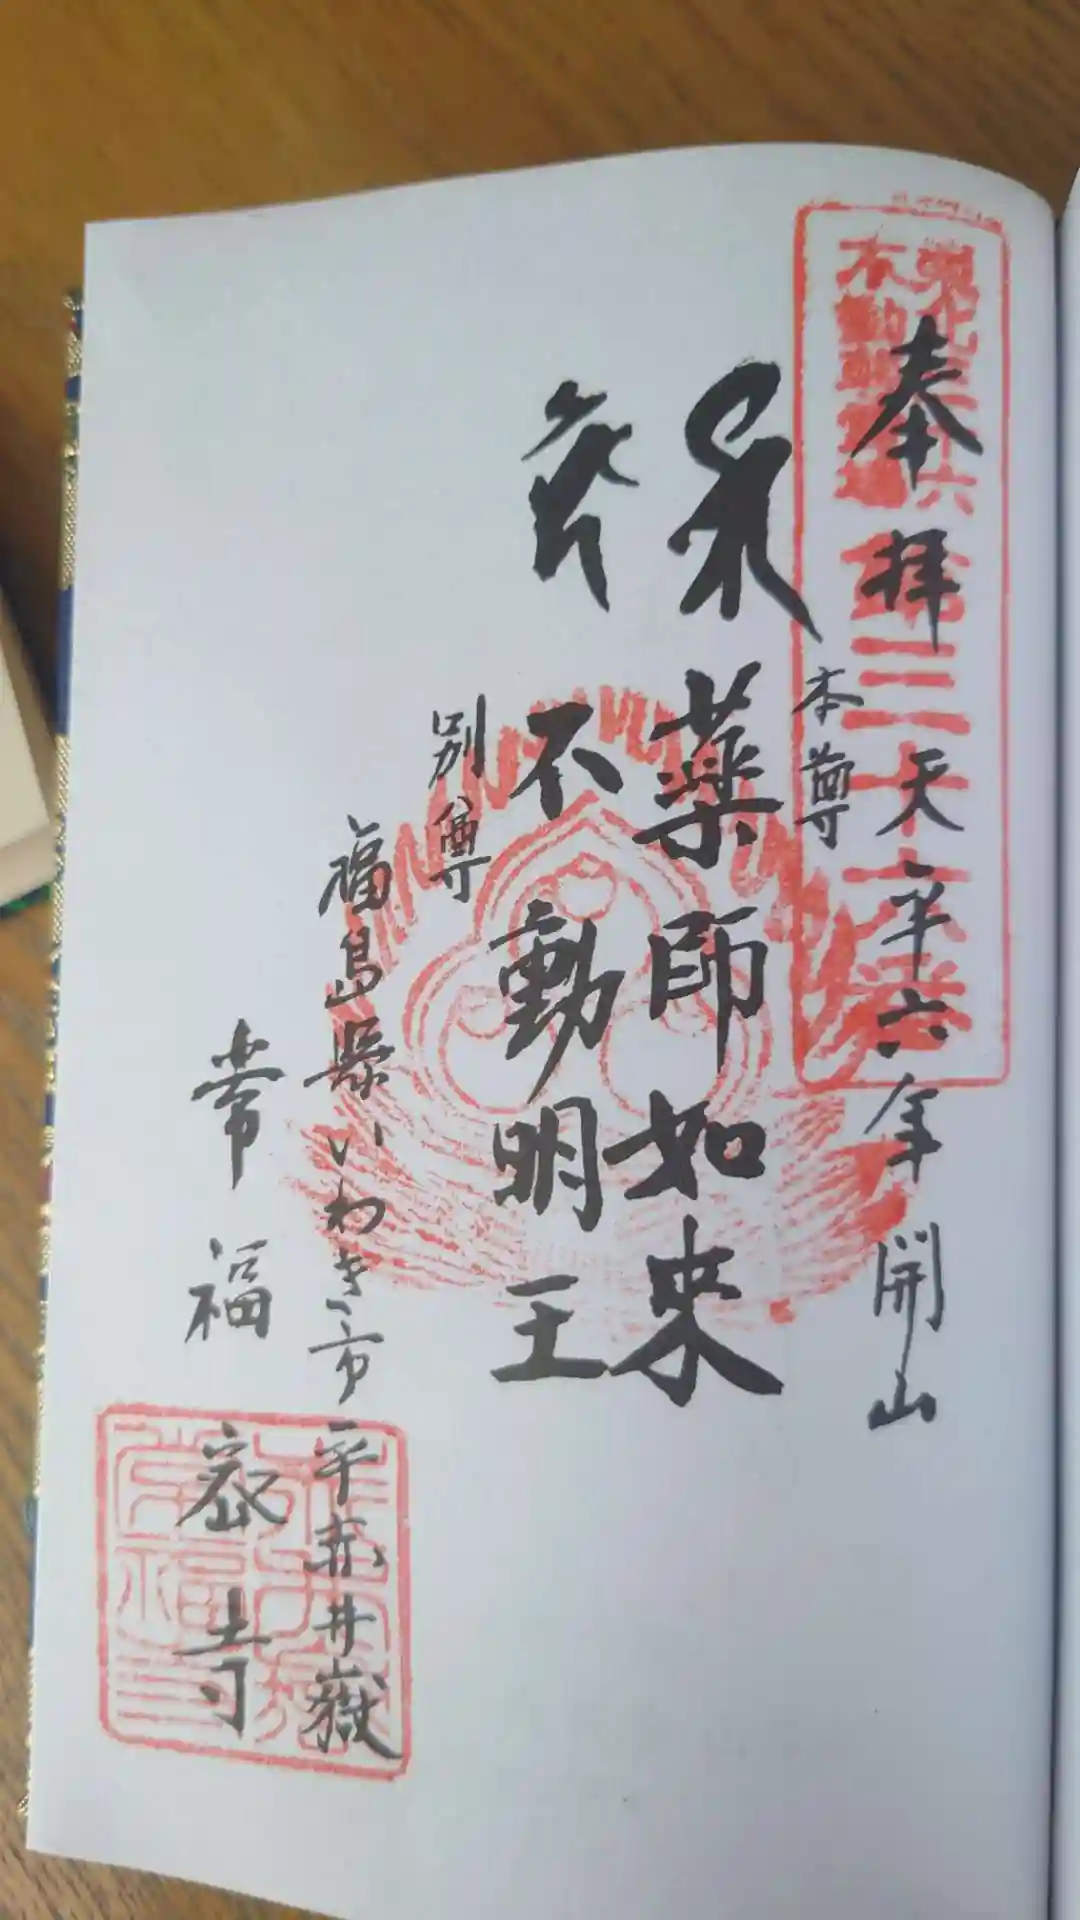 東北三十六
不動尊霊場
奉拝 天平六年開山
本尊
薬師如来
不動明王
別尊
福島県いわき市平赤井嶽
常福密寺